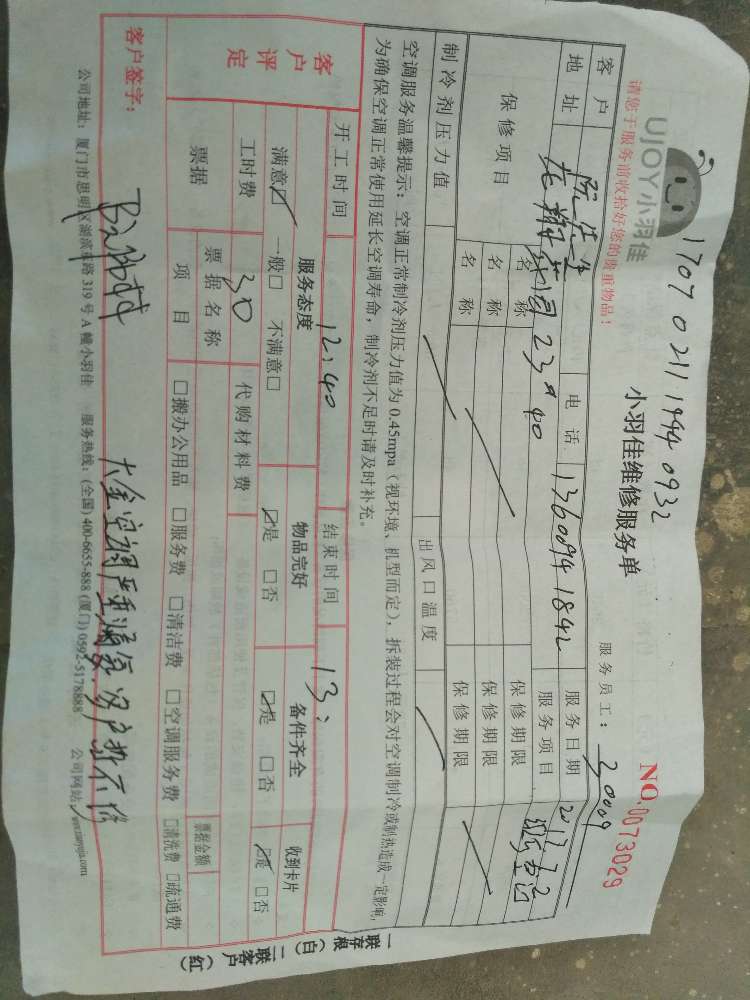 UJOY小羽佳
1707021119440932
请您于服务前收拾好您的贵重物品!
小羽佳维修服务单
NO.0073029
服务员工: 30009
客户 电话 13600941842 服务日期 2017.7.2
地址 23 40 服务项目
保修项目 名称 保修期限
名称 保修期限
名称 保修期限
制冷剂压力值 出风口温度
空调服务温馨提示:空调正常制冷剂压力值为0.45mpa(视环境、机型而定),拆装过程会对空调制冷或制热造成一定影响,
为确保空调正常使用延长空调寿命,制冷剂不足时请及时补充。
开工时间 12:40 结束时间 13:
客户评定
服务态度 物品完好 备件齐全 收到卡片
满意☑ 一般□ 不满意□ ☑是 □否 ☑是 □否 ☑是 □否
工时费 30 代购材料费
票据 票据名称 票据金额
项目 □搬办公用品 □服务费 □清洁费 □空调服务费 □清洗费 □疏通费
客户签字:
大金空调严重漏氟,客户暂不修
公司地址:厦门市思明区湖滨南路319号A幢小羽佳 服务热线:(全国)400-6655-888 (厦门)0592-5178888 公司网站:www.xiaoyujia.com
一联存根(白) 二联客户(红)